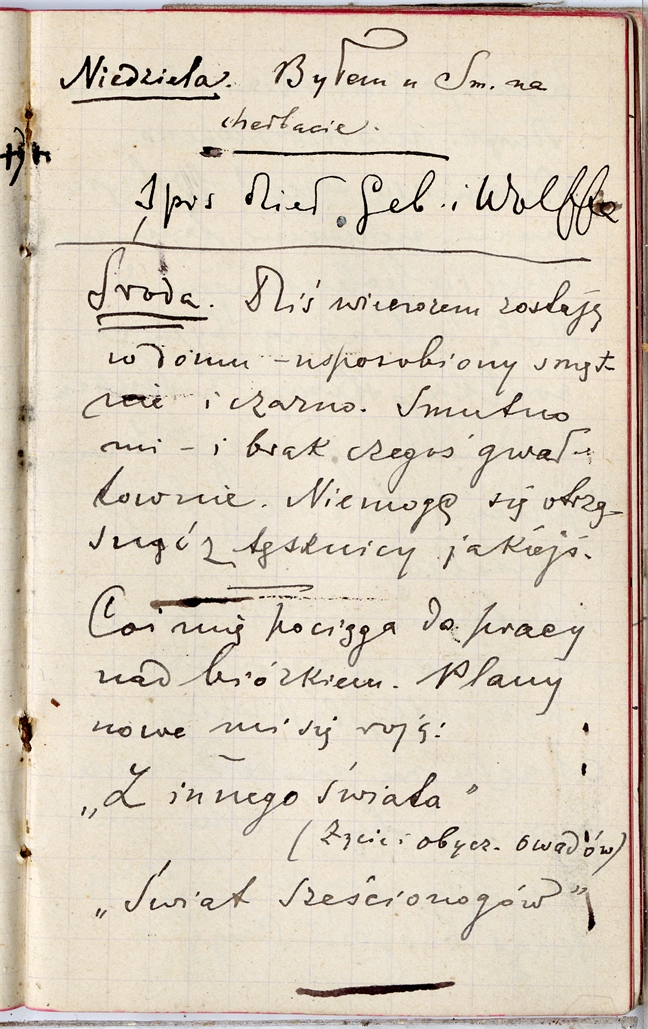 Niedziela. Byłem u Sm. na
herbacie.
Sprs dzieł Geb. i Wolffa
Środa. Dziś wieczorem zostaję
w domu – usposobiony smęt-
nie i czarno. Smutno
mi – i brak czegoś gwał-
townie. Niemogę się otrzą-
snąć z tęsknicy jakiejś.
Coś mię pociąga do pracy
nad biórkiem. Plany
nowe mi się roją:
„Z innego świata"
(Życie i obycz. owadów)
„Świat sześcionogów"